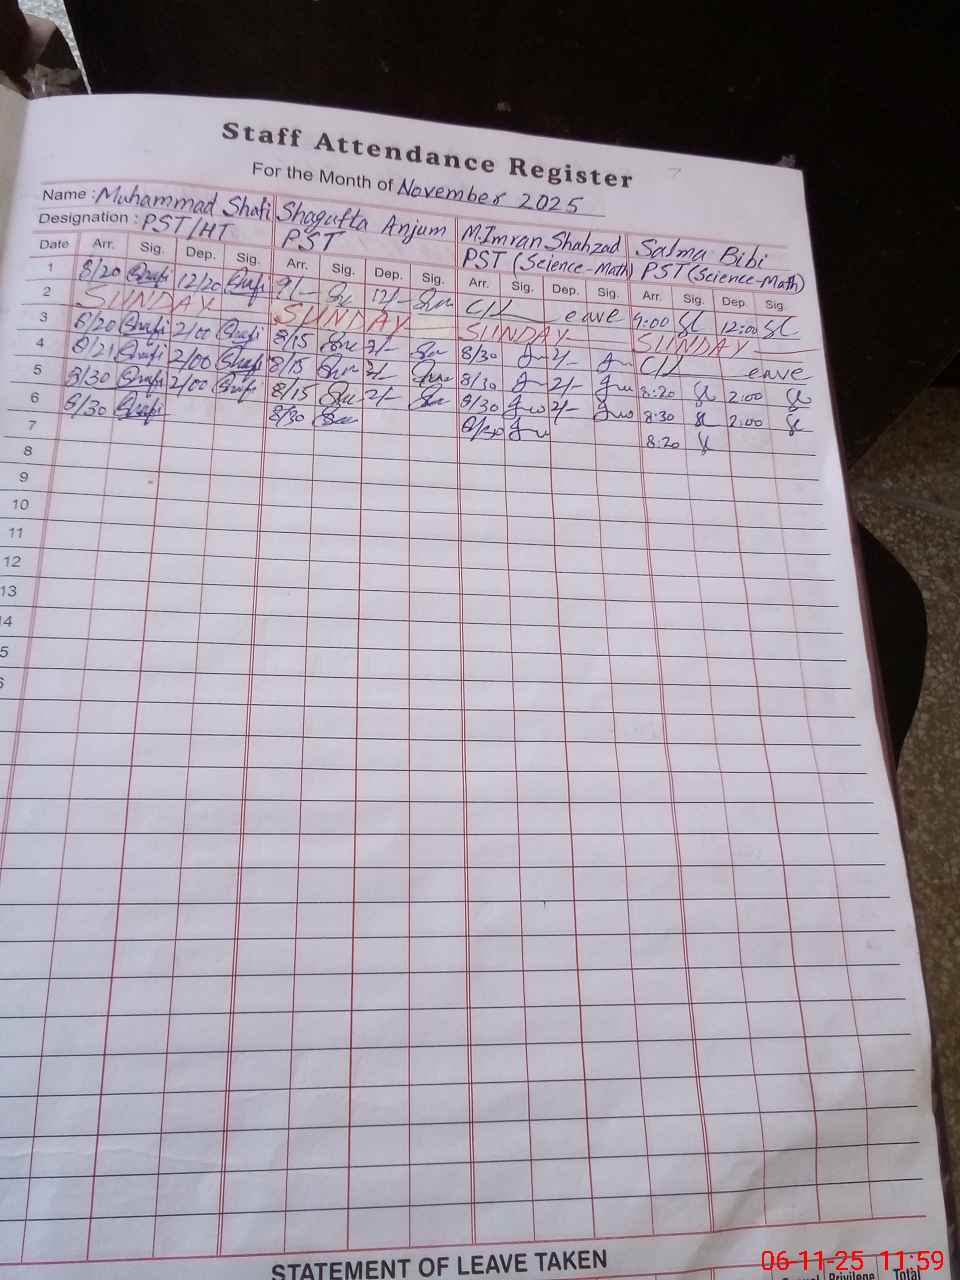 Staff Attendance Register
For the Month of November 2025
Name : Muhammad Shafi Shagufta Anjum M.Imran Shahzad Salma Bibi
Designation : PST/HT PST PST (Science-Math) PST (Science-Math)
Date Arr. Sig. Dep. Sig. Arr. Sig. Dep. Sig. Arr. Sig. Dep. Sig. Arr. Sig. Dep. Sig.
1 8/20 Shafi 12/20 Shafi 9/- 12/- C/L eave 9:00 12:00
2 SUNDAY SUNDAY SUNDAY SUNDAY
3 8/20 Shafi 2/00 Shafi 8/15 2/- 8/30 2/- C/L eave
4 8/21 Shafi 2/00 Shafi 8/15 2/- 8/30 2/- 8:20 2:00
5 8/30 Shafi 2/00 Shafi 8/15 2/- 8/30 2/- 8:30 2:00
6 8/30 Shafi 8/30 8/30 8:20
7
8
9
10
11
12
13
14
5
STATEMENT OF LEAVE TAKEN
Privilege Total
06-11-25 11:59